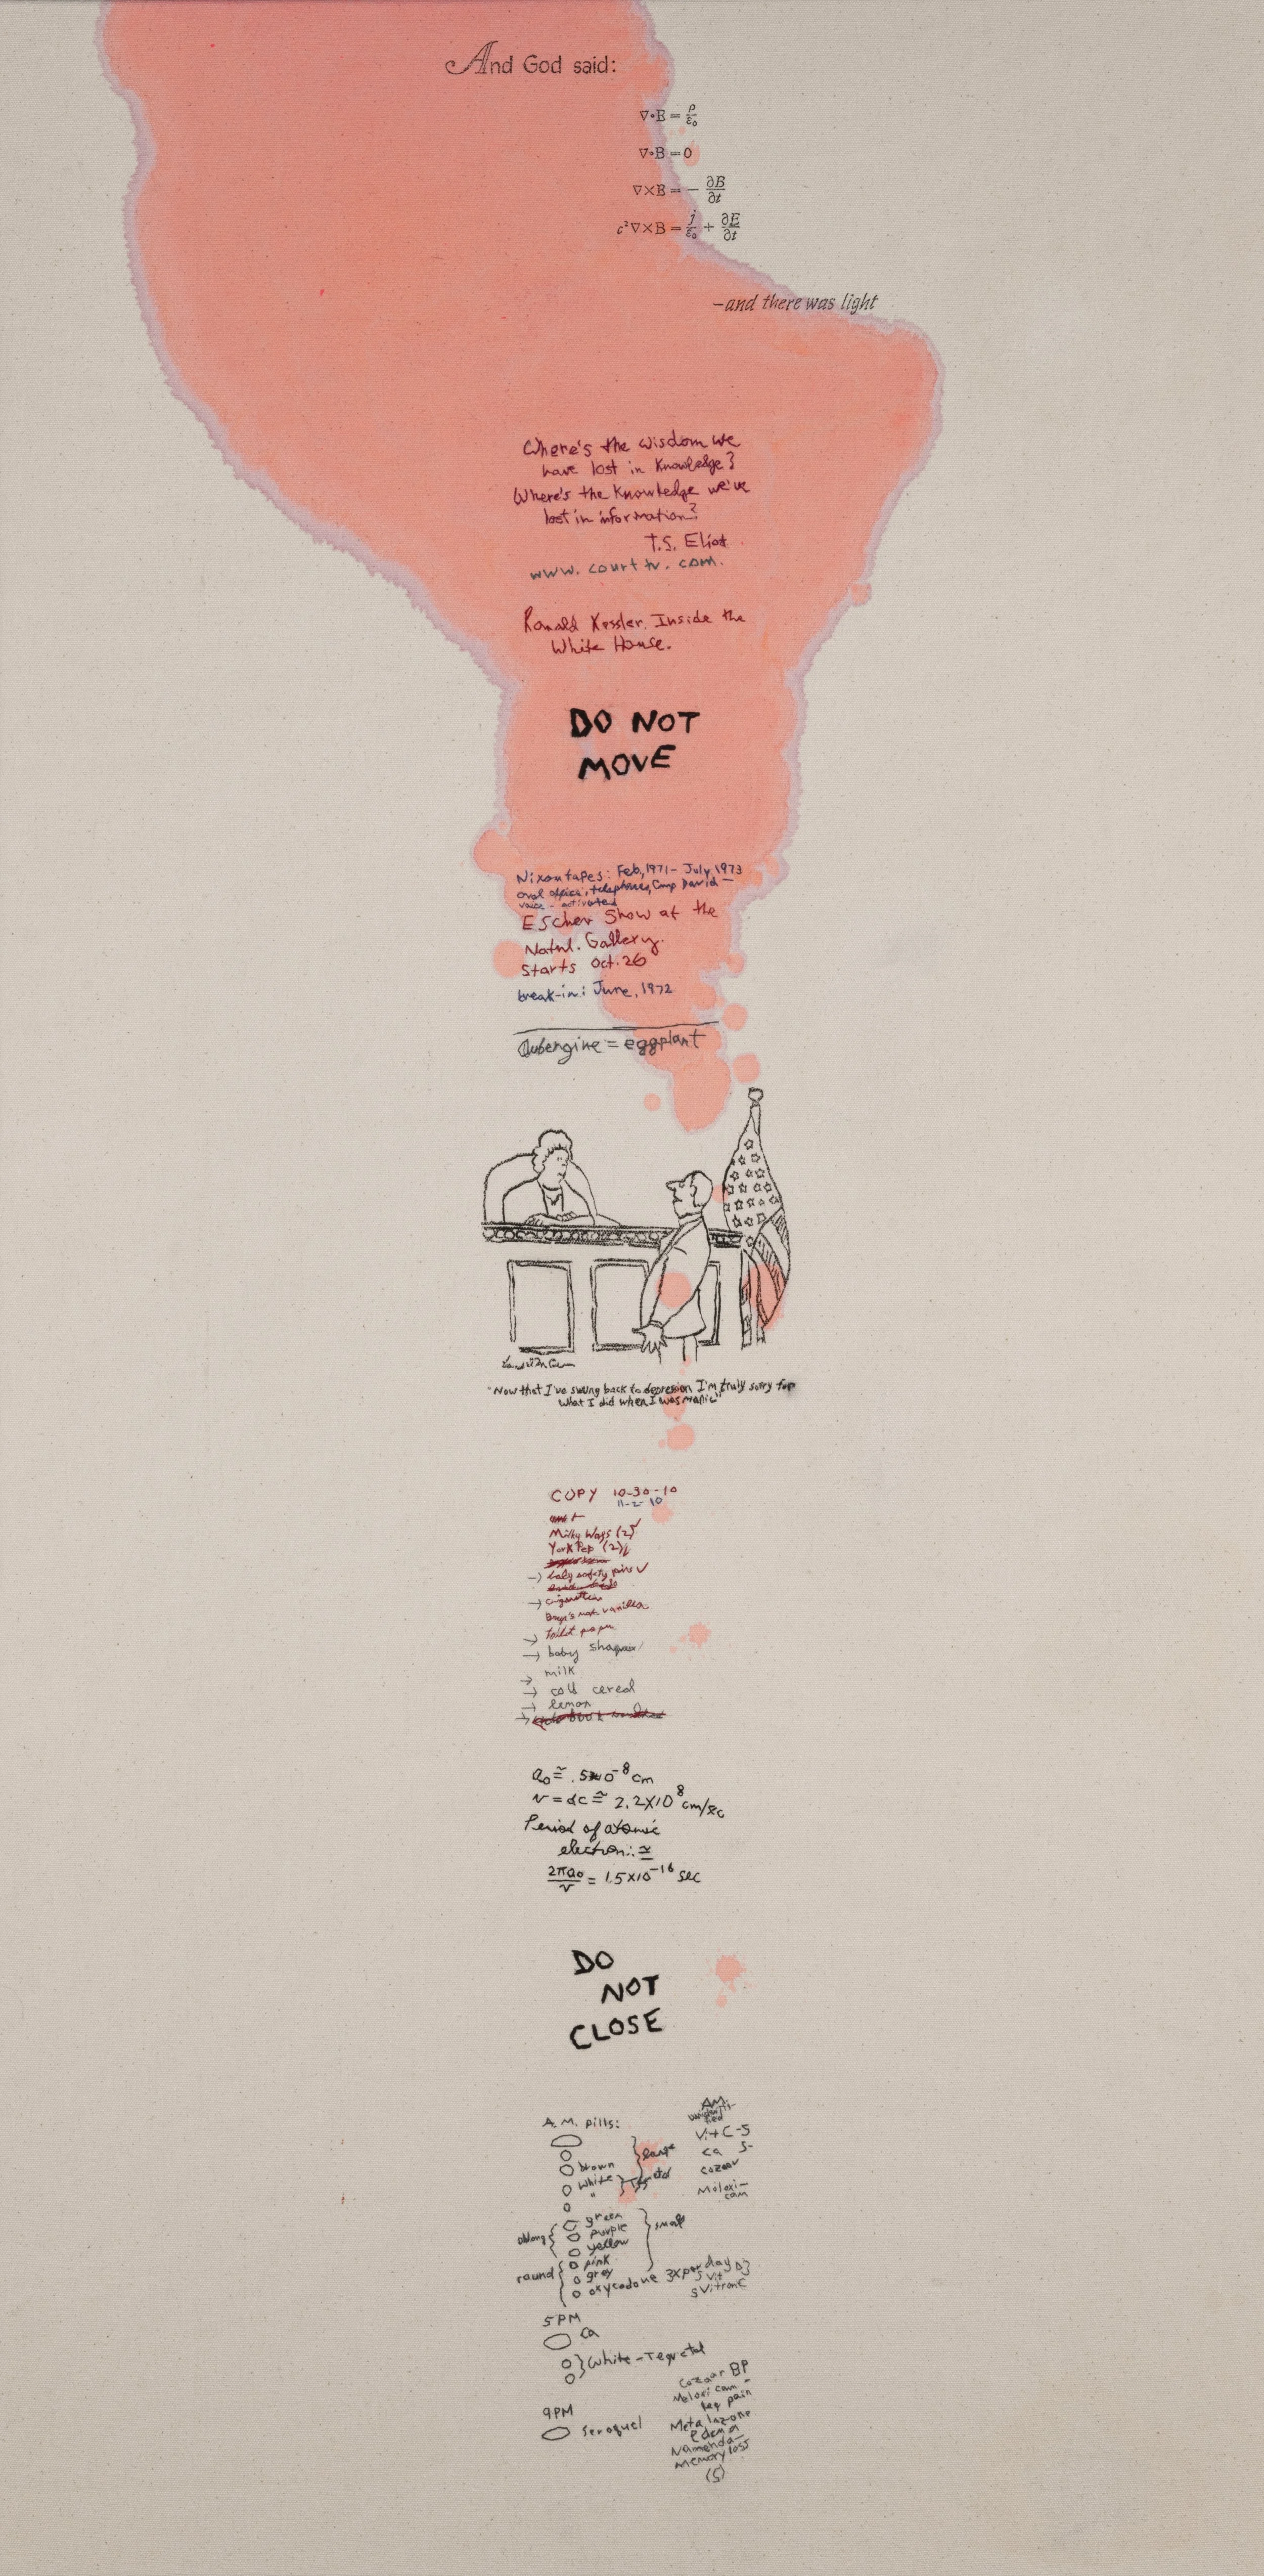 And God said:
∇•E = ρ/ε₀
∇•B = 0
∇×E = − ∂B/∂t
c²∇×B = j/ε₀ + ∂E/∂t
–and there was light
Where's the wisdom we
have lost in Knowledge?
Where's the Knowledge we've
lost in information?
T.S. Eliot
www. courttv. com.
Ronald Kessler. Inside the
White House.
DO NOT
MOVE
Nixontapes: Feb, 1971 – July 1973
oval office, telephones, Camp David –
voice - activated
Escher Show at the
Natnl. Gallery.
Starts Oct. 26
break-in: June, 1972
Aubergine = eggplant
"Now that I've swung back to depression I'm truly sorry for
what I did when I was manic"
COPY 10-30-10
11-2-10
Milky Ways (2)
York Pep (2)
→ baby safety pins ✓
→ cigarettes
vanilla
→ toilet paper
→ baby
→ milk
→ cold cereal
→ lemon
→
a₀ ≅ .5×10⁻⁸ cm
v = αc ≅ 2.2×10⁸ cm/sec
Period of atomic
electron: ≅
2πa₀/v = 1.5×10⁻¹⁶ sec
DO
NOT
CLOSE
A.M. pills:
brown
white
"
large
oblong
green
purple
yellow
small
round
pink
grey
oxycodone 3x per day
AM:
Vit C - 5
Ca 5-
Cozaar
Meloxi-
cam
5 Vit D3
5 Vitron C
5 PM
Ca
White - Tegretol
9 PM
Seroquel
Cozaar BP
Meloxicam -
pain
Metalazone
edema
Namenda -
Memory loss
(5)